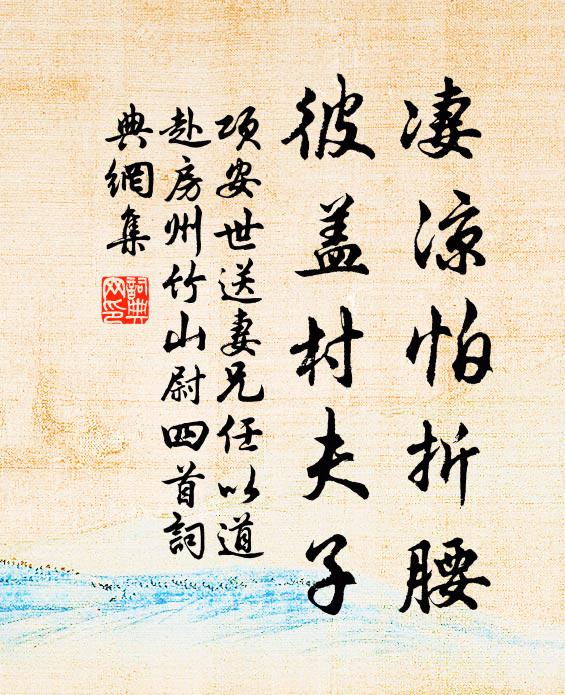 凄涼怕折腰
彼蓋村夫子
项安世送妻兄任以道
赴房州竹山尉四首詞
典網集
詞典網印